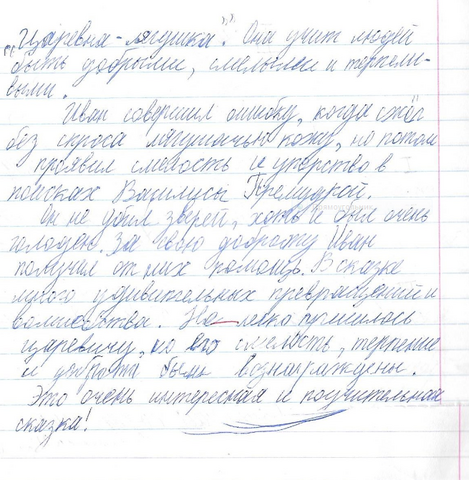 „Царевна-лягушка". Она учит людей
быть добрыми, смелыми и терпели-
выми.
Иван совершил ошибку, когда сжёг
без спроса лягушачью кожу, но потом
проявил смелость и упорство в
поисках Василисы Премудрой.
Он не убил зверей, хоть и был очень
голоден. За свою доброту Иван
получил от них помощь. В сказке
много удивительных превращений и
волшебства. Не легко пришлось
царевичу, но его смелость, терпение
и доброта были вознаграждены.
Это очень интересная и поучительная
сказка!